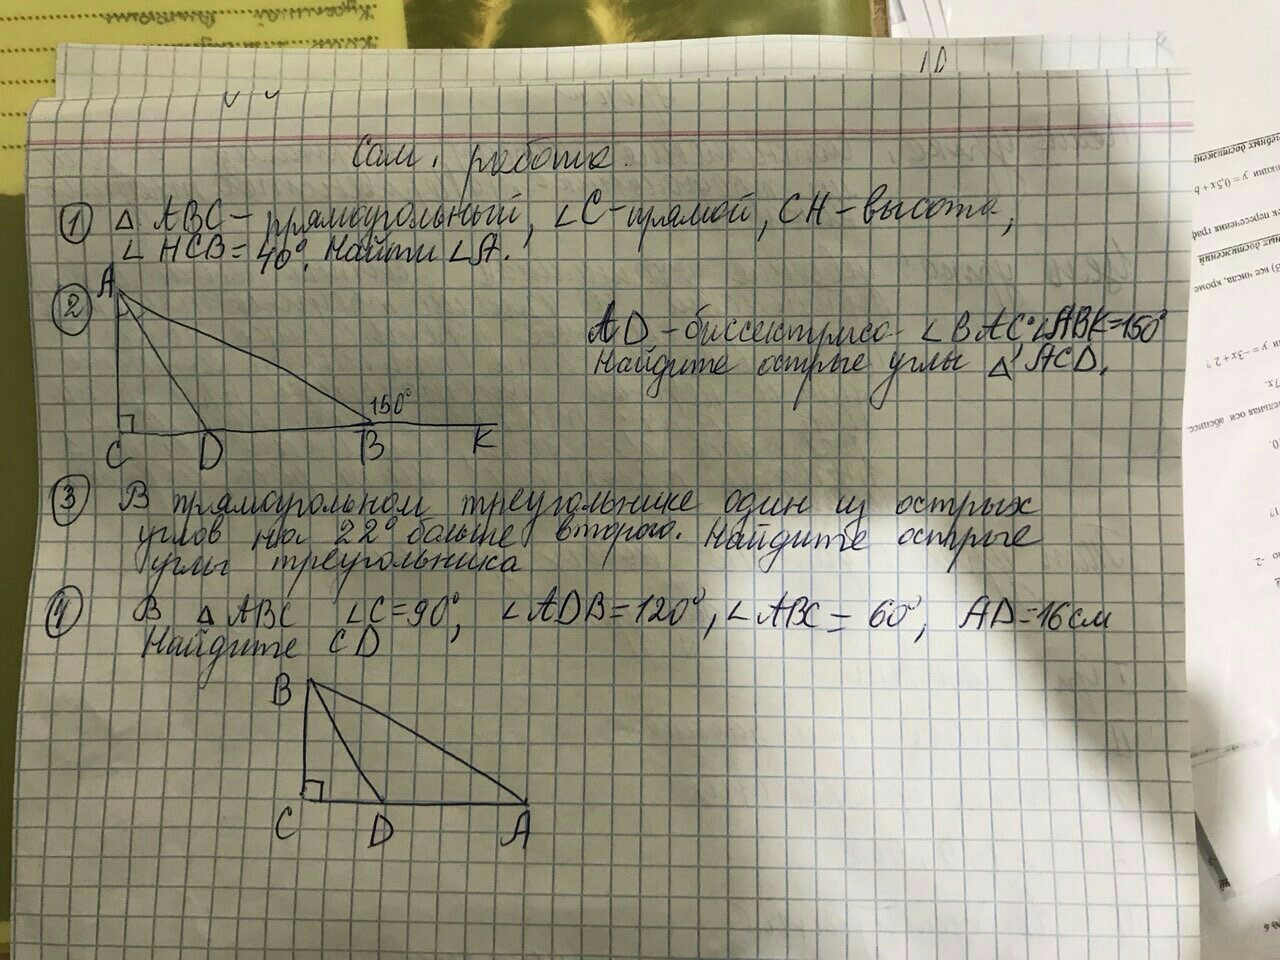 Сам. работа.
① △ ABC – прямоугольный, ∠C – прямой, CH – высота,
∠ HCB = 40°. Найти ∠A.
②
A
150°
C D B K
AD – биссектриса ∠ BAC, ∠ABK=150°
Найдите острые углы △ ACD.
③ В прямоугольном треугольнике один из острых
углов на 22° больше второго. Найдите острые
углы треугольника
④ В △ ABC ∠C=90°, ∠ADB=120°, ∠ABC = 60°, AD=16 см
Найдите CD
B
C D A
y = 0,5x + b
все числа, кроме
y = –3x + 2 ?